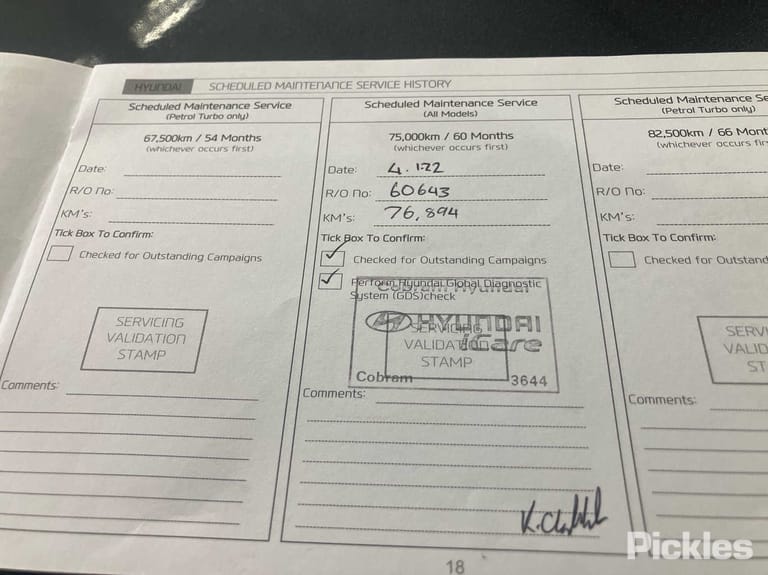 HYUNDAI SCHEDULED MAINTENANCE SERVICE HISTORY
Scheduled Maintenance Service
(Petrol Turbo only)
67,500km / 54 Months
(whichever occurs first)
Date:
R/O No:
KM's:
Tick Box To Confirm:
Checked for Outstanding Campaigns
SERVICING
VALIDATION
STAMP
Comments:
Scheduled Maintenance Service
(All Models)
75,000km / 60 Months
(whichever occurs first)
Date: 4.1.22
R/O No: 60643
KM's: 76,894
Tick Box To Confirm:
Checked for Outstanding Campaigns
Perform Hyundai Global Diagnostic
System (GDS)check
Cobram Hyundai
HYUNDAI
iCare
Cobram 3644
SERVICING
VALIDATION
STAMP
Comments:
Scheduled Maintenance Se
(Petrol Turbo only)
82,500km / 66 Mont
(whichever occurs fir
Date:
R/O No:
KM's:
Tick Box To Confirm:
Checked for Outstand
SERVI
VALID
ST
Comments:
18
Pickles